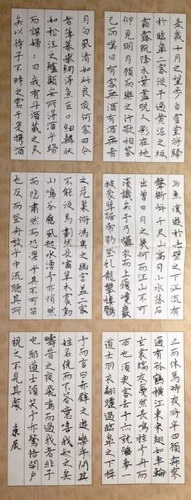 是歲十月之望步自雪堂將歸
於臨皋二客從予過黃泥之坂
霜露既降木葉盡脫人影在地
仰見明月顧而樂之行歌相答
已而嘆曰有客無酒有酒無肴
月白風清如此良夜何客曰今
者薄暮舉網得魚巨口細鱗狀
如松江之鱸顧安所得酒乎歸
而謀諸婦婦曰我有斗酒藏之久
矣以待子不時之需於是攜酒
與魚復遊於赤壁之下江流有
聲斷岸千尺山高月小水落石
出曾日月之幾何而江山不可
復識矣予乃攝衣而上履巉巖
披蒙茸踞虎豹登虬龍攀棲鶻
之危巢俯馮夷之幽宮蓋二客
不能從焉劃然長嘯草木震動
山鳴谷應風起水湧予亦悄然
而悲肅然而恐凜乎其不可留
也反而登舟放乎中流聽其所
止而休焉時夜將半四顧寂寥
適有孤鶴橫江東來翅如車輪
玄裳縞衣戛然長鳴掠予舟而
西也須臾客去予亦就睡夢一
道士羽衣蹁躚過臨皋之下揖
予而言曰赤壁之遊樂乎問其
姓名俛而不答嗚呼噫嘻我知之矣
疇昔之夜飛鳴而過我者非子
也耶道士顧笑予亦驚悟開戶
視之不見其處